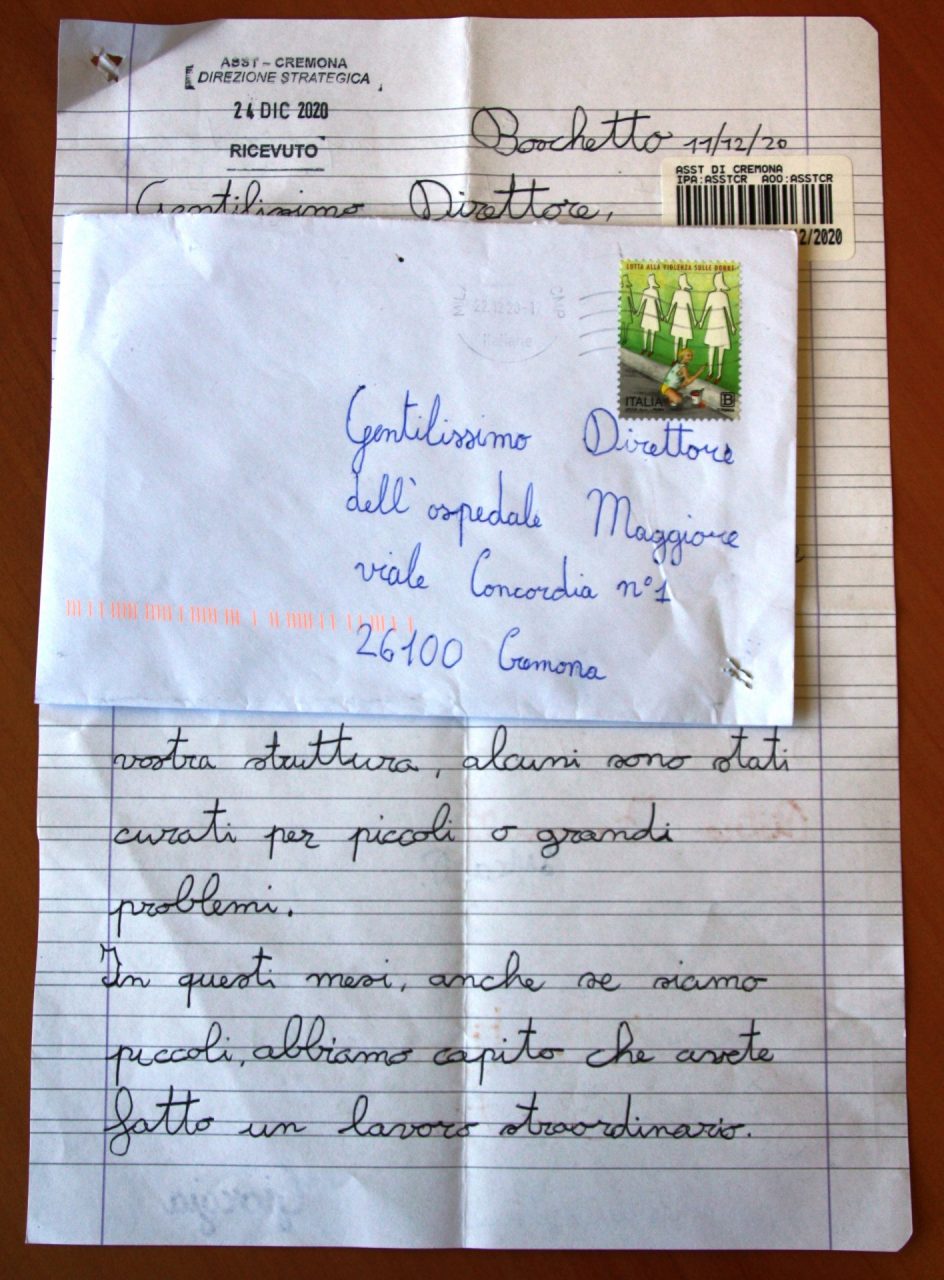 ASST - CREMONA
DIREZIONE STRATEGICA
24 DIC 2020
RICEVUTO
Boschetto 11/12/20
ASST DI CREMONA
IPA:ASSTCR AOO:ASSTCR
12/2020
Gentilissimo Direttore,
LOTTA ALLA VIOLENZA SULLE DONNE
22.12.20-1
CMP
italiane
ITALIA B
Gentilissimo Direttore
dell'ospedale Maggiore
viale Concordia n°1
26100 Cremona
vostra struttura, alcuni sono stati
curati per piccoli o grandi
problemi.
In questi mesi, anche se siamo
piccoli, abbiamo capito che avete
fatto un lavoro straordinario.
Giorgia